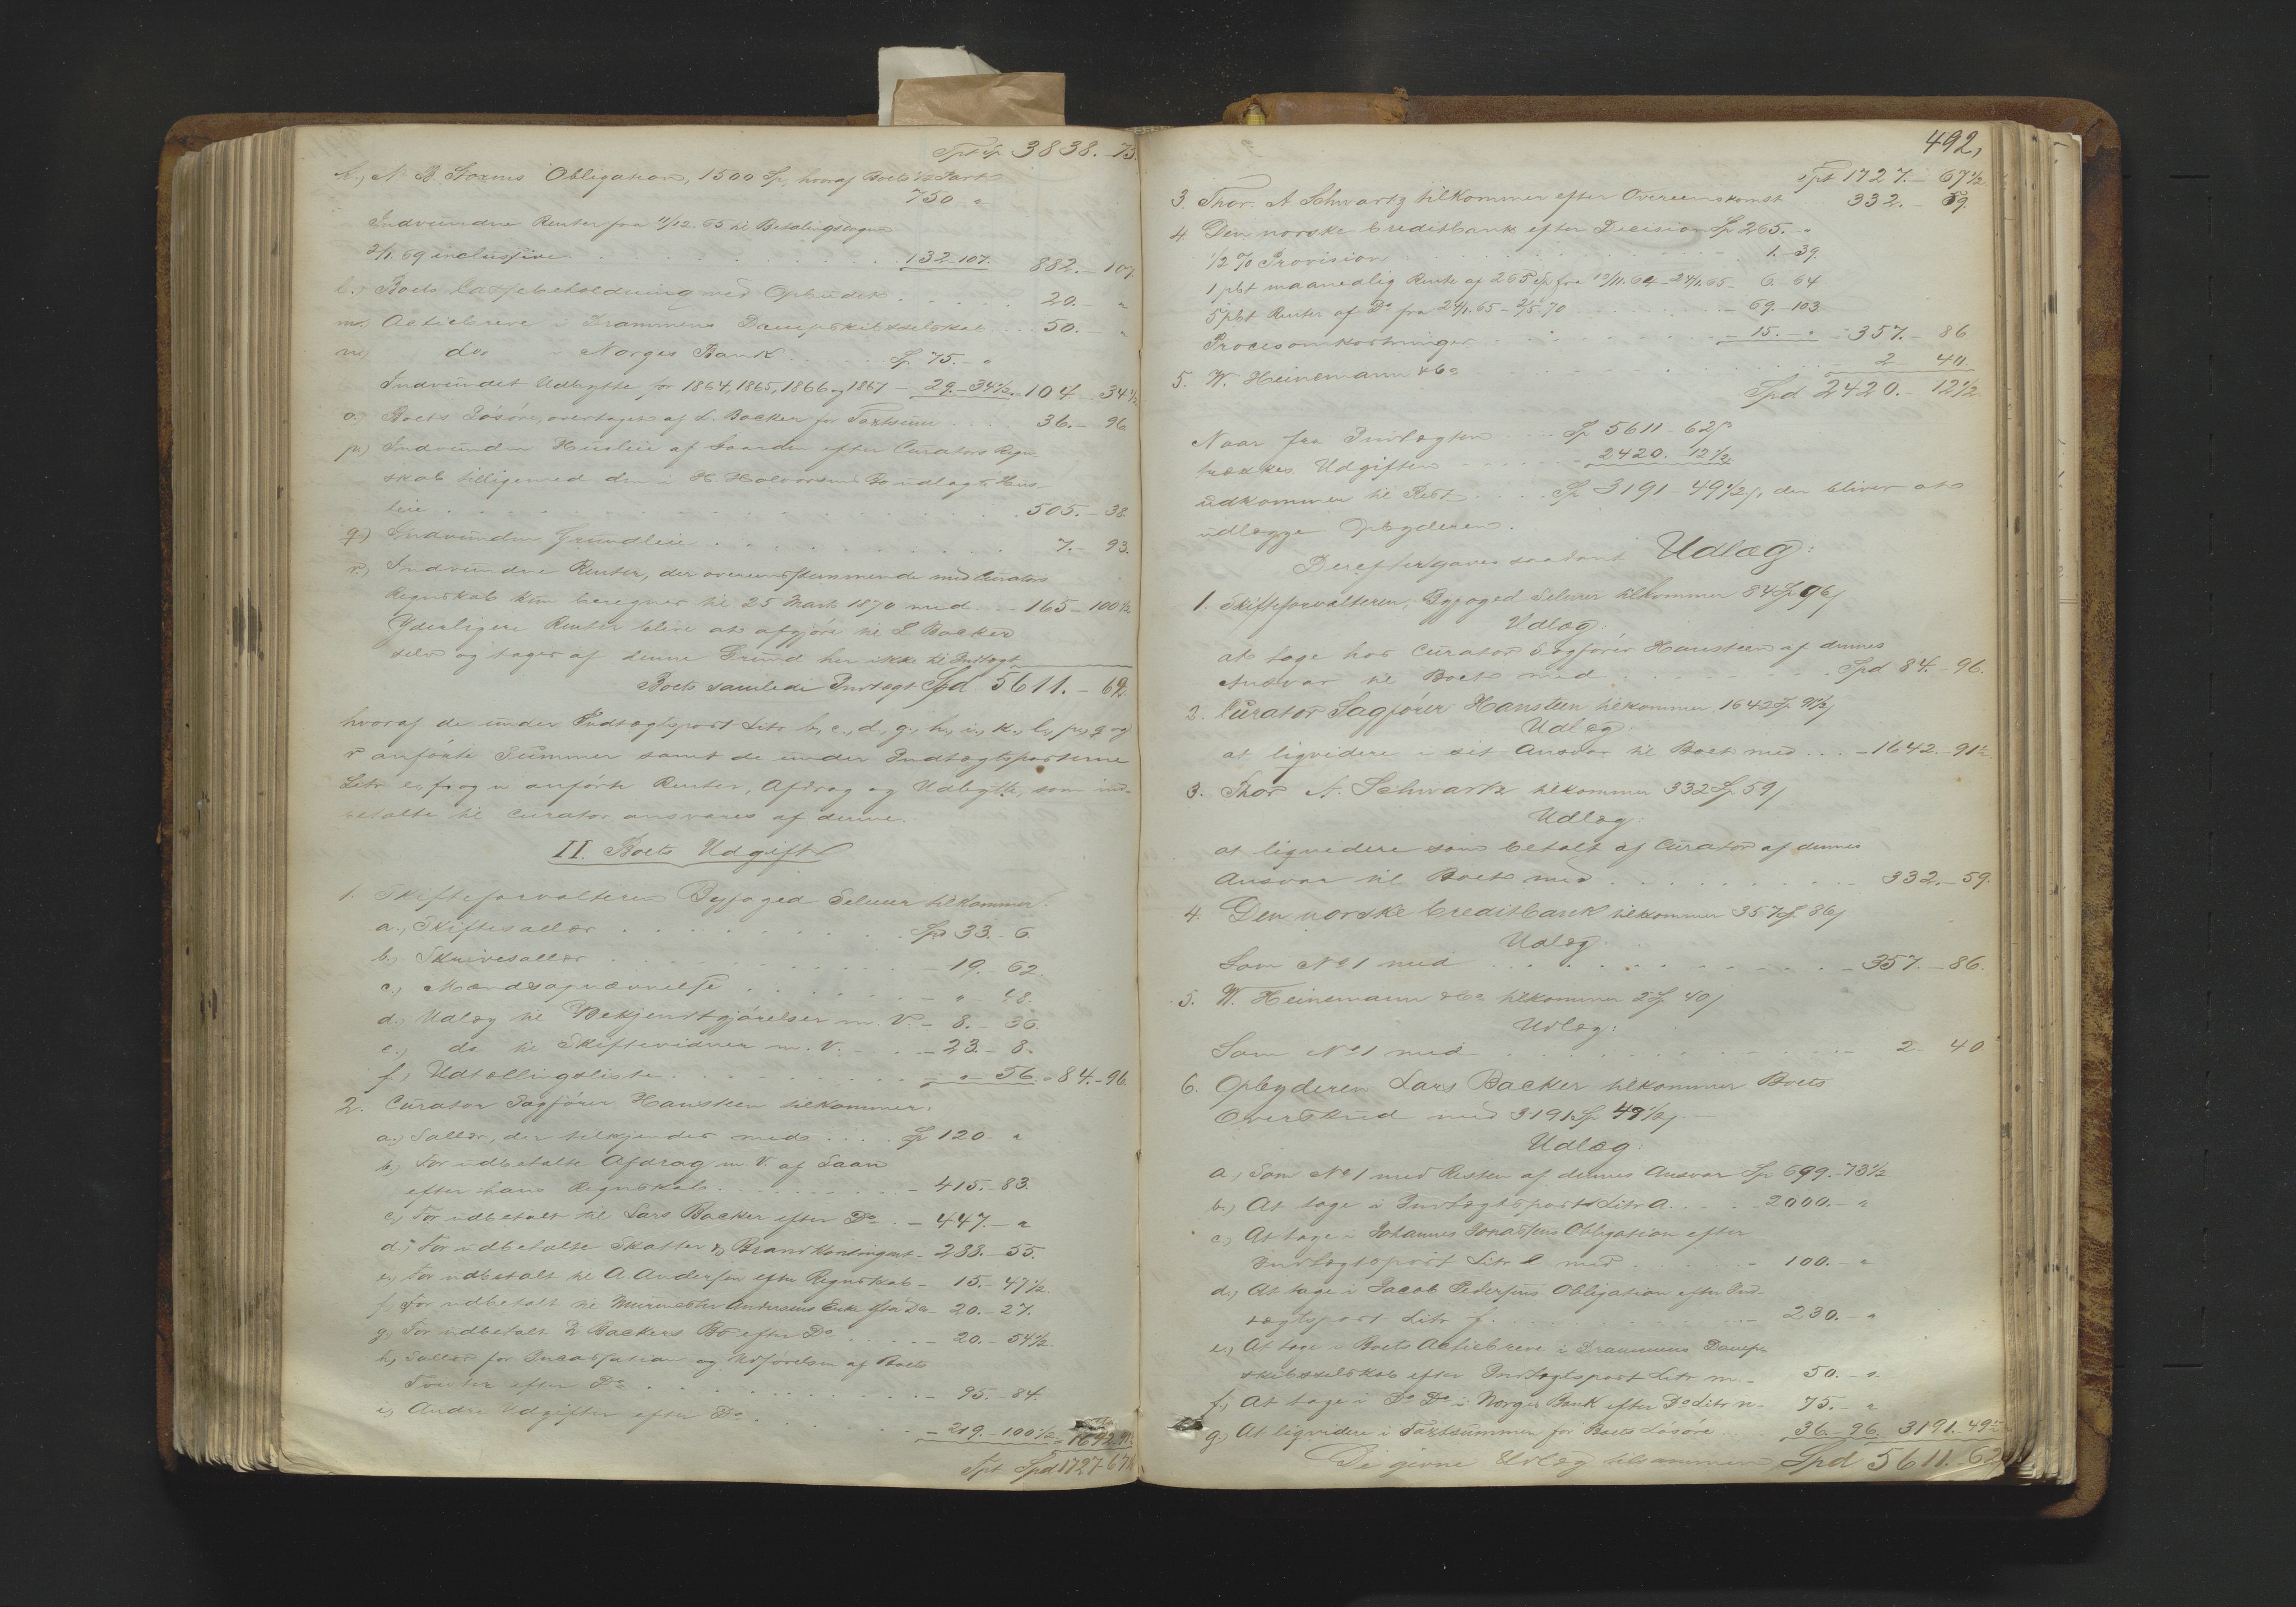 Tpt Sp 3838.-73.
k., N. B. Storms Obligation, 1500 Sp, hvoraf Boets 1/2 Part
750 "
Indvundne Renter fra 11/12. 65 til Betalingsdagen
2/1. 69 inclusive . . . 132-107. 882.-107.
l., Boets Cassebeholdning ved Opbudet . . . 20.- "
m., Actiebreve i Drammens Dampskibsselskab . . 50.- "
n., do i Norges Bank . . . Sp 75.- "
Indvundet Udbytte for 1864, 1865, 1866 og 1867 - 29.-34 1/2. 104-34 1/2
o.) Boets Løsøre, overtaget af L. Backer for Taxtsum . . . 36.-96
p.) Indvunden Husleie af Gaarden efter Curators Regn-
skab tilligemed den i H. Halvorsens Bo udlagte Hus-
leie . . . 505.-38.
q.) Indvunden Grundleie . . . 7.-93.
r., Indvundne Renter, der overensstemmende med Curators
Regnskab kun beregnes til 25 Marts 1870 med . . - 165-100 1/2
Yderligere Renter blive at afgjøre til L. Backer
selv og tages af denne Grund her ikke til Indtægt
Boets samlede Indtægt Spd 5611.-62.
hvoraf de under Indtægtspost Litr b, c., d., g., h., i., k., l., p., q og
r anførte Summer samt de under Indtægtsposterne
Litr e, f og n anførte Renter, Afdrag og Udbytte, som ind-
betalte til Curator ansvares af denne.
II. Boets Udgift
1. Skifteforvalteren Byfoged Selmer tilkommer:
a., Skiftesallær . . . Sp 33.-6.
b., Skrivesallær . . . - 19.-62.
c., Mændsopnævnelse . . . - " - 48.
d., Udlæg til Bekjendtgjørelser m. V. - 8.-36.
e.) do til Skiftevidner m. V. . . - 23.-8.
f., Udtællingsliste . . . - " - 56. 84.-96
2. Curator Sagfører Hansteen tilkommer:
a.) Sallær, der tilkjendes med . . . Sp 120- "
b., For udbetalte Afdrag m. V. af Laan
efter hans Regnskab . . . - 415.-83.
c., For udbetalt til Lars Backer efter Do . - 447.- "
d., For udbetalte Skatter og Brandkontingent - 288.-55.
e., For udbetalt til A. Andersen efter Regnskab - 15.-47 1/2
f., For udbetalt til Murmester Andersens Enke efter Do - 20.-27.
g., For udbetalt L. Backers Bo efter Do . . . - 20.-54 1/2.
h., Sallær for Incassation og Udførelsen af Boets
efter Do . . . - 95.-84.
i., Andre Udgifter efter Do . . .
- 219.-100 1/2 - 1642.91 1/2
Tpt Spd 1727-67 1/2
492,
Tpt 1727.-67 1/2
3. Thor. A. Schwartz tilkommer efter Overeenskomst 332.-59.
4. Den norske Creditbank efter Decision Sp 265.- "
1/2 % Provision . . . 1.-39.
1 pCt maanedlig Rente af 265 Sp fra 10/11. 64-24/1. 65- 6.-64
5 pCt Renter af Do fra 24/1. 65-2/5. 70 . . . - 69.-103.
Procesomkostninger . . . - 15.- " - 357.-86
5. W. Heinemann & Co . . . 2 40.
Spd 2420.-12 1/2.
Naar fra Indtægten . . . Sp 5611-62 β
trækkes Udgiften . . . - 2420.-12 1/2.
udkommer til Rest . . . Sp 3191-49 1/2 β, der bliver at
udlægge Opbyderen.
Derefter gaves saadant Udlæg:
1. Skifteforvalteren, Byfoged Selmer tilkommer 84 Sp 96 β
Udlæg:
at tage hos Curator Sagfører Hansteen af dennes
Ansvar til Boet med . . . Spd 84.-96.
2. Curator Sagfører Hansteen tilkommer 1642 Sp 91 1/2 β
Udlæg:
at liqvidere i sit Ansvar til Boet med . . . - 1642.-91 1/2.
3. Thor A. Schwartz tilkommer 332 Sp 59 β
Udlæg:
at liqvidere som betalt af Curator af dennes
Ansvar til Boet med . . . - 332.-59.
4. Den norske Creditbank tilkommer 357 Sp 86 β
Udlæg:
Som No 1 med . . . - 357.-86.
5. W. Heinemann & Co tilkommer 2 Sp 40 β
Udlæg:
Som No 1 med . . . - 2. 40
6. Opbyderen Lars Backer tilkommer Boets
Overskud med 3191 Sp 49 1/2 β. -
Udlæg:
a, Som No 1 med Resten af dennes Ansvar Sp 699.-73 1/2
b., At tage i Indtægtspost Litr a. . . . - 2000.- "
c., At tage i Johannes Jonassens Obligation efter
Indtægtspost Litr e med . . . - 100.- "
d., At tage i Jacob Pedersens Obligation efter Ind-
tægtspost Litr f. . . . - 230.- "
e., At tage i Boets Actiebreve i Drammens Damp-
skibsselskab efter Indtægtspost Litr m. - 50.- ".
f., At tage i Do Do i Norges Bank efter Do Litr n - 75.- "
g., At liqvidere i Taxtsummen for Boets Løsøre . . 36.-96. 3191.-49 1/2
De givne Udlæg tilsammen Spd 5611.62